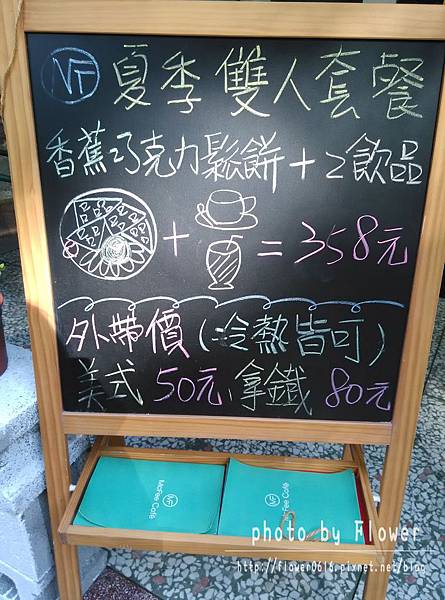 NF 夏季雙人套餐
香蕉巧克力鬆餅+2飲品
+ = 358元
外帶價(冷熱皆可)
美式50元、拿鐵80元
NF
McFee Café
NF
McFee Café
photo by Flower
http://flower0618.pixnet.net/blog